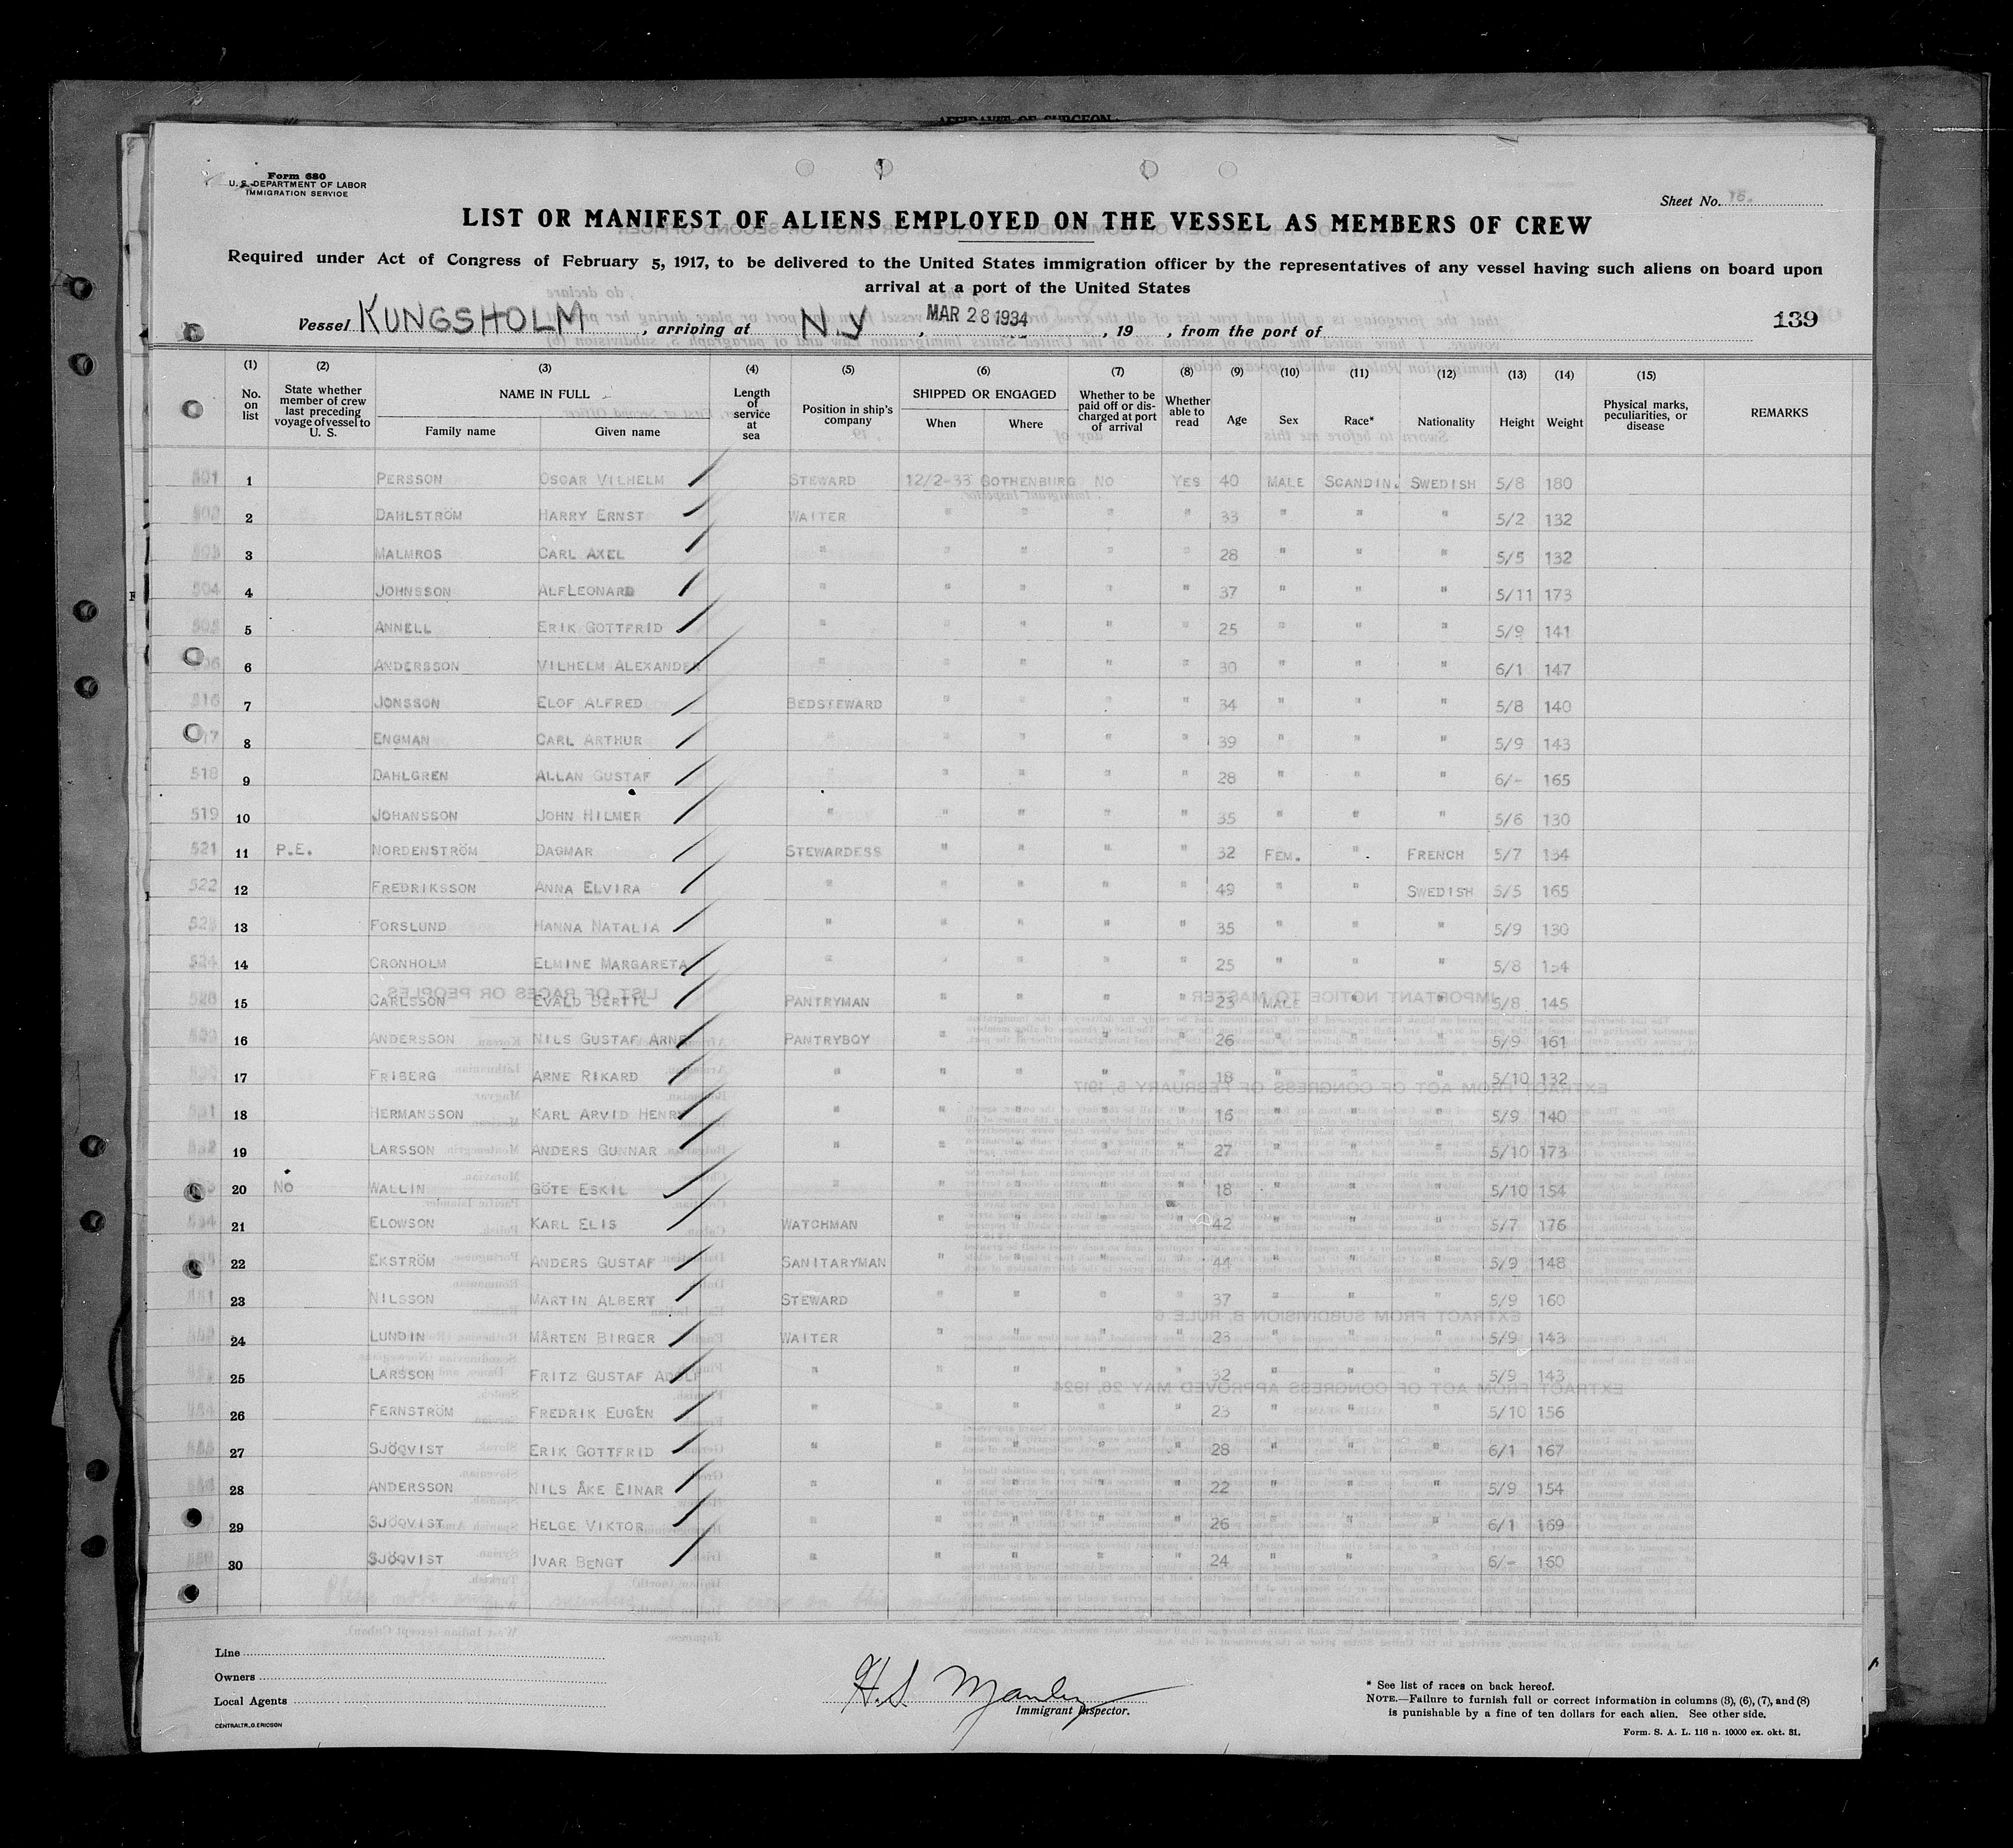 AFFIDAVIT OF SURGEON
Form 680
U. S. DEPARTMENT OF LABOR
IMMIGRATION SERVICE
Sheet No. 16.
LIST OR MANIFEST OF ALIENS EMPLOYED ON THE VESSEL AS MEMBERS OF CREW
Required under Act of Congress of February 5, 1917, to be delivered to the United States immigration officer by the representatives of any vessel having such aliens on board upon
arrival at a port of the United States
Vessel KUNGSHOLM, arriving at N.Y, MAR 28 1934, 19 , from the port of
139
(1) (2) (3) (4) (5) (6) (7) (8) (9) (10) (11) (12) (13) (14) (15)
No. on list State whether member of crew last preceding voyage of vessel to U. S. NAME IN FULL Family name Given name Length of service at sea Position in ship's company SHIPPED OR ENGAGED When Where Whether to be paid off or discharged at port of arrival Whether able to read Age Sex Race* Nationality Height Weight Physical marks, peculiarities, or disease REMARKS
501 1 PERSSON OSCAR VILHELM STEWARD 12/2-33 GOTHENBURG NO YES 40 MALE SCANDIN. SWEDISH 5/8 180
502 2 DAHLSTRÖM HARRY ERNST WAITER " " " " 33 " " " 5/2 132
503 3 MALMROS CARL AXEL " " " " " 28 " " " 5/5 132
504 4 JOHNSSON ALFLEONARD " " " " " 37 " " " 5/11 173
505 5 ANNELL ERIK GOTTFRID " " " " " 25 " " " 5/9 141
6 ANDERSSON VILHELM ALEXANDER " " " " " 30 " " " 6/1 147
516 7 JONSSON ELOF ALFRED BEDSTEWARD " " " " 34 " " " 5/8 140
8 ENGMAN CARL ARTHUR " " " " " 39 " " " 5/9 143
518 9 DAHLGREN ALLAN GUSTAF " " " " " 28 " " " 6/- 165
519 10 JOHANSSON JOHN HILMER " " " " " 35 " " " 5/6 130
521 11 P.E. NORDENSTRÖM DAGMAR STEWARDESS " " " " 32 FEM. " FRENCH 5/7 134
522 12 FREDRIKSSON ANNA ELVIRA " " " " " 49 " " SWEDISH 5/5 165
523 13 FORSLUND HANNA NATALIA " " " " " 35 " " " 5/9 130
524 14 CRONHOLM ELMINE MARGARETA " " " " " 25 " " " 5/8 134
15 CARLSSON EVALD BERTIL PANTRYMAN " " " " 23 MALE " " 5/8 145
16 ANDERSSON NILS GUSTAF ARNE PANTRYBOY " " " " 26 " " " 5/9 161
17 FRIBERG ARNE RIKARD " " " " " 18 " " " 5/10 132
18 HERMANSSON KARL ARVID HENRY " " " " " 16 " " " 5/9 140
19 LARSSON ANDERS GUNNAR " " " " " 27 " " " 5/10 173
20 NO WALLIN GÖTE ESKIL " " " " " 18 " " " 5/10 154
21 ELOWSON KARL ELIS WATCHMAN " " " " 42 " " " 5/7 176
22 EKSTRÖM ANDERS GUSTAF SANITARYMAN " " " " 44 " " " 5/9 148
23 NILSSON MARTIN ALBERT STEWARD " " " " 37 " " " 5/9 160
24 LUNDIN MÅRTEN BIRGER WAITER " " " " 23 " " " 5/9 143
25 LARSSON FRITZ GUSTAF ADOLF " " " " " 32 " " " 5/9 143
26 FERNSTRÖM FREDRIK EUGEN " " " " " 23 " " " 5/10 156
27 SJÖQVIST ERIK GOTTFRID " " " " " 28 " " " 6/1 167
28 ANDERSSON NILS ÅKE EINAR " " " " " 22 " " " 5/9 154
29 SJÖQVIST HELGE VIKTOR " " " " " 26 " " " 6/1 169
30 SJÖQVIST IVAR BENGT " " " " " 24 " " " 6/- 160
Line
Owners
Local Agents
CENTRALTR., G. ERICSON
H.S. Manley
Immigrant Inspector.
* See list of races on back hereof.
NOTE.—Failure to furnish full or correct information in columns (3), (6), (7), and (8)
is punishable by a fine of ten dollars for each alien. See other side.
Form. S. A. L. 116 n. 10000 ex. okt. 31.